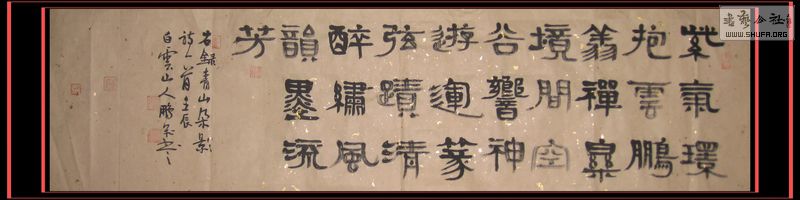 紫氣環
抱雲鵬
翥禪泉
境間空
谷響神
遊運篆
弦蹟清
醉繡風
韻墨流
芳
右錄青山朵影
詩一首壬辰
白雲山人鵬
書藝公社
WWW.SHUFA.ORG